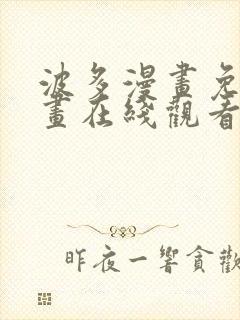 波多漫畫免
畫在綫觀看
昨夜一響貪歡